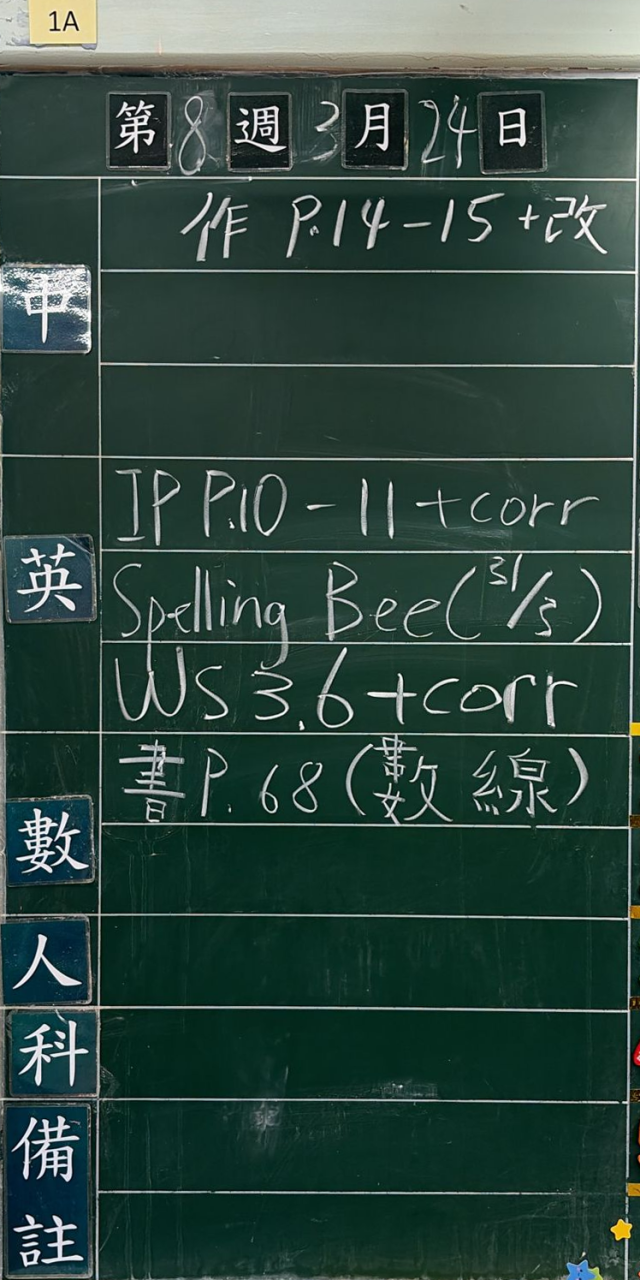 1A
第8週3月24日
中
作 P.14-15+改
英
IP P.10-11+corr
Spelling Bee(31/3)
WS 3.6+corr
數
書P.68(數線)
人
科
備
註